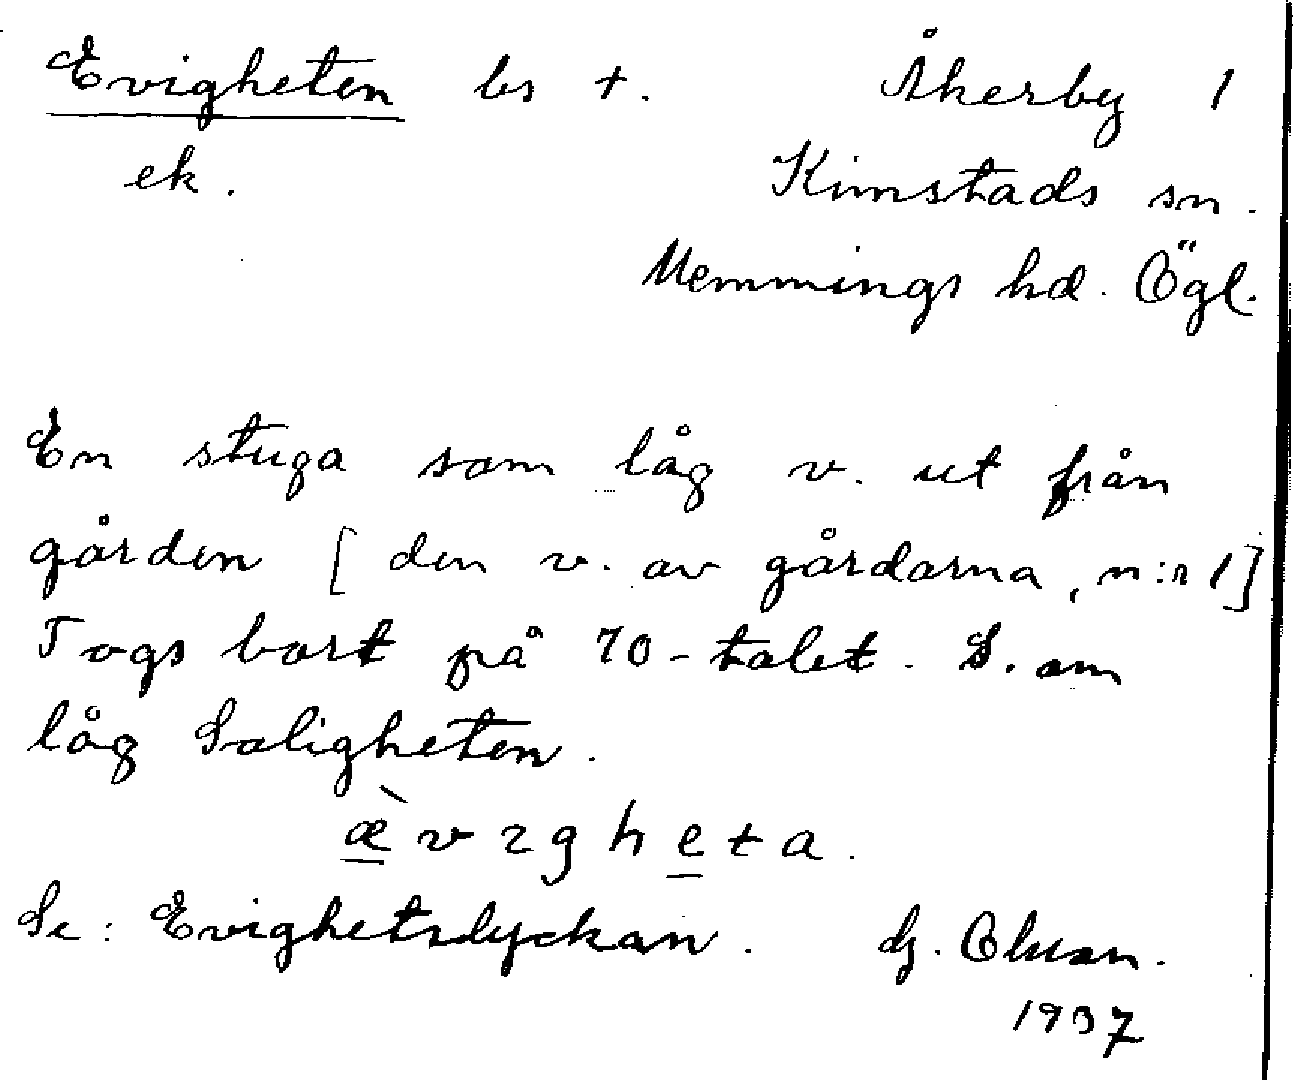 Evigheten bs +. Åkerby 1
ek. Kimstads sn.
Memmings hd. Ögl.
En stuga som låg v. ut från
gården [den v. av gårdarna, n:r 1]
Togs bort på 70-talet. S. om
låg Saligheten.
æ̀vıgheta.
Se: Evighetslyckan. G. Olsson.
1937